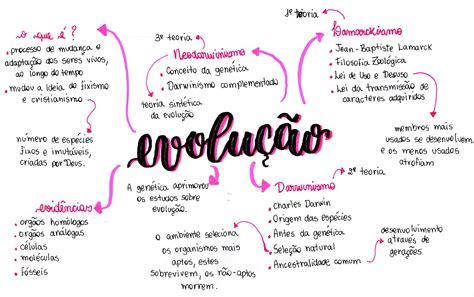 o que é?
• processo de mudança e
adaptação dos seres vivos,
ao longo do tempo
• mudou a ideia do fixismo
e cristianismo
número de espécies
fixos e imutáveis,
criadas por Deus.
3ª teoria
Neodarwinismo
• Conceito da genética
• Darwinismo complementado
teoria sintética
da evolução
1ª teoria
Lamarckismo
• Jean-Baptiste Lamarck
• Filosofia Zoológica
• Lei de Uso e Desuso
• Lei da transmissão de
caracteres adquiridos
membros mais
usados se desenvolvem
e os menos usados
atrofiam
evolução
evidências
• orgãos homólogos
• orgãos análogas
• células
• moléculas
• fósseis
A genética aprimorou
os estudos sobre
evolução.
2ª teoria
Darwinismo
• Charles Darwin
• Origem das espécies
• Antes da genética
• Seleção natural
• Ancestralidade comum
o ambiente seleciona
os organismos mais
aptos, estes
sobrevivem, os não-aptos
morrem.
desenvolvimento
através de
gerações